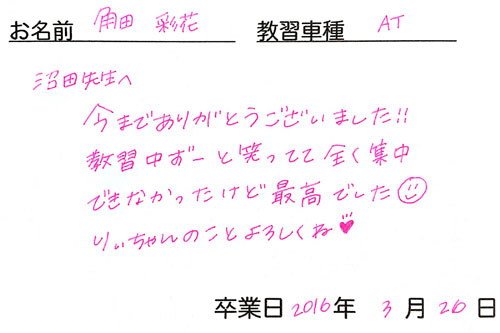 お名前 角田 彩花 教習車種 AT
沼田先生へ
今までありがとうございました!!
教習中ずーと笑ってて全く集中
できなかったけど最高でした☺
りぃちゃんのことよろしくね♥
卒業日 2016年 3月 26日